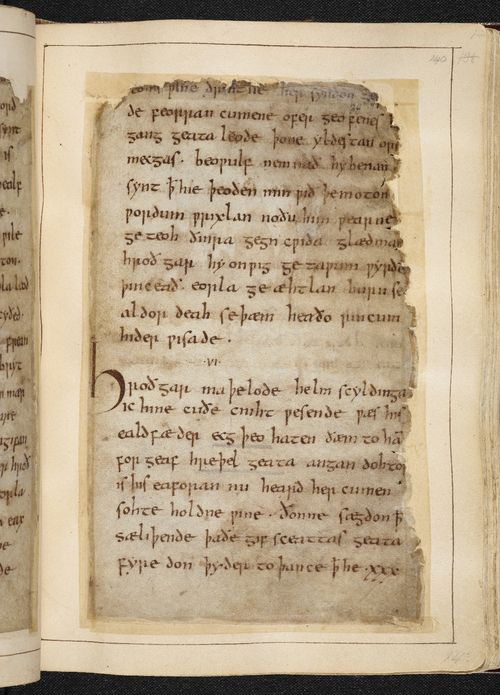 ƿine drihtne her syndon ge
140
de feorran cumene ofer geofenes
gang geata leode þone yldestan ore
mecgas · beoƿulf nemnað hy benan
synt ꝥ hie þeoden min ƿið þe moton
ƿordum ƿrixlan no ðu him ƿearne
ge teoh ðinra gegn cƿida glædma
hroð gar hy on ƿig ge taƿum ƿyrðe
þinceað eorla ge æhtlan huru se
aldor deah se þæm heaðo rincum
hider ƿisade ·
·VI·
Hroðgar maþelode helm scyldinga
ic hine cuðe cniht ƿesende ƿæs his
eald fæder ecg þeo haten ðæm to hā
for geaf hreþel geata angan dohtor
is his eaforan nu heard her cumen
sohte holdne ƿine · ðonne sægdon ꝥ
sæliþende þa ðe gif sceattas geata
fyre don þyder to þance ꝥ he ·xxx·